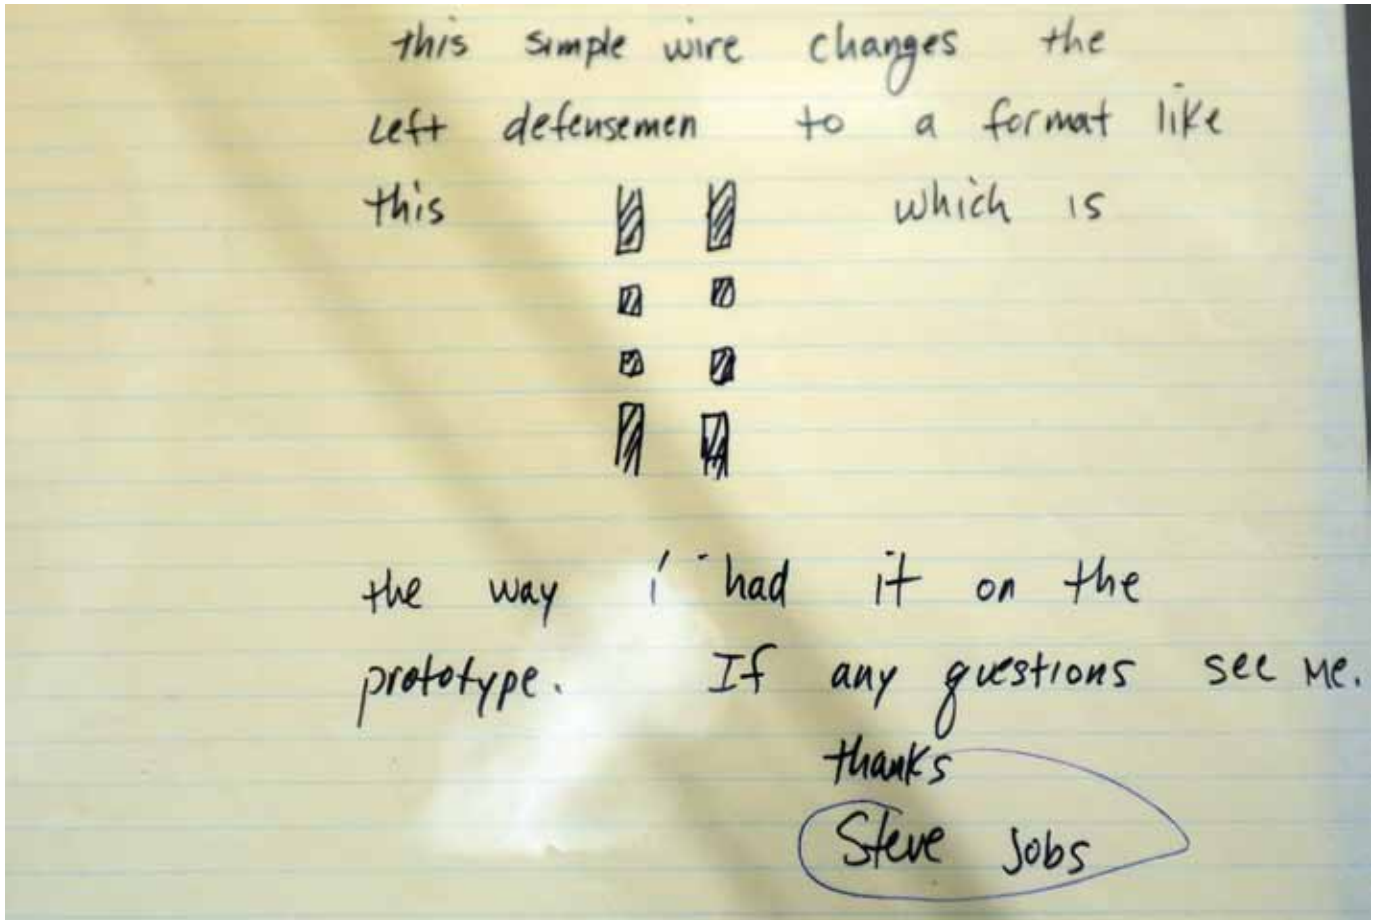 this simple wire changes the
Left defensemen to a format like
this which is
the way i had it on the
prototype. If any questions see me.
thanks
Steve Jobs